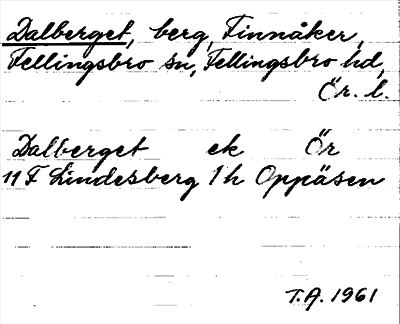 Dalberget, berg, Finnåker,
Fellingsbro sn, Fellingsbro hd,
Ör. l.
Dalberget ek Ör
11 F Lindesberg 1 h Oppåsen
T.A. 1961